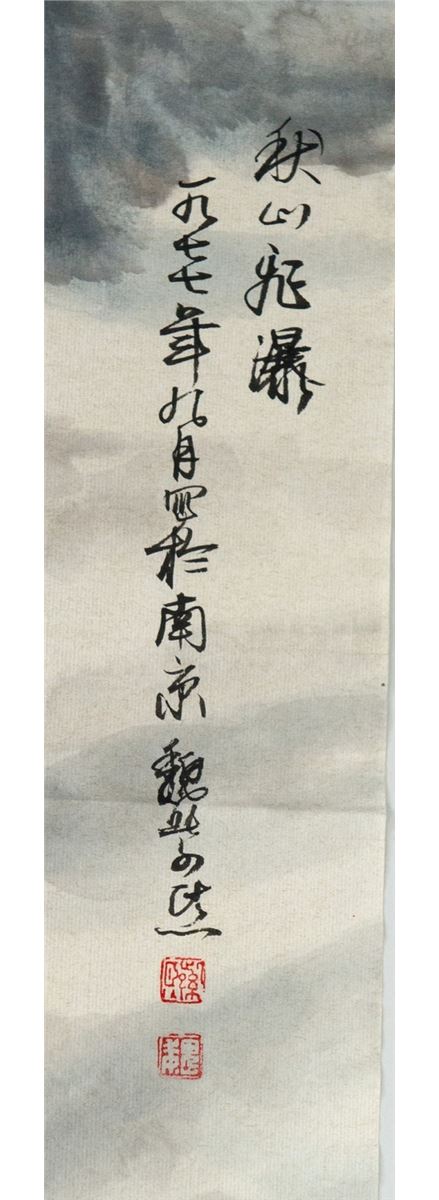 秋山飛瀑
一九七七年九月画於南京 魏紫熙